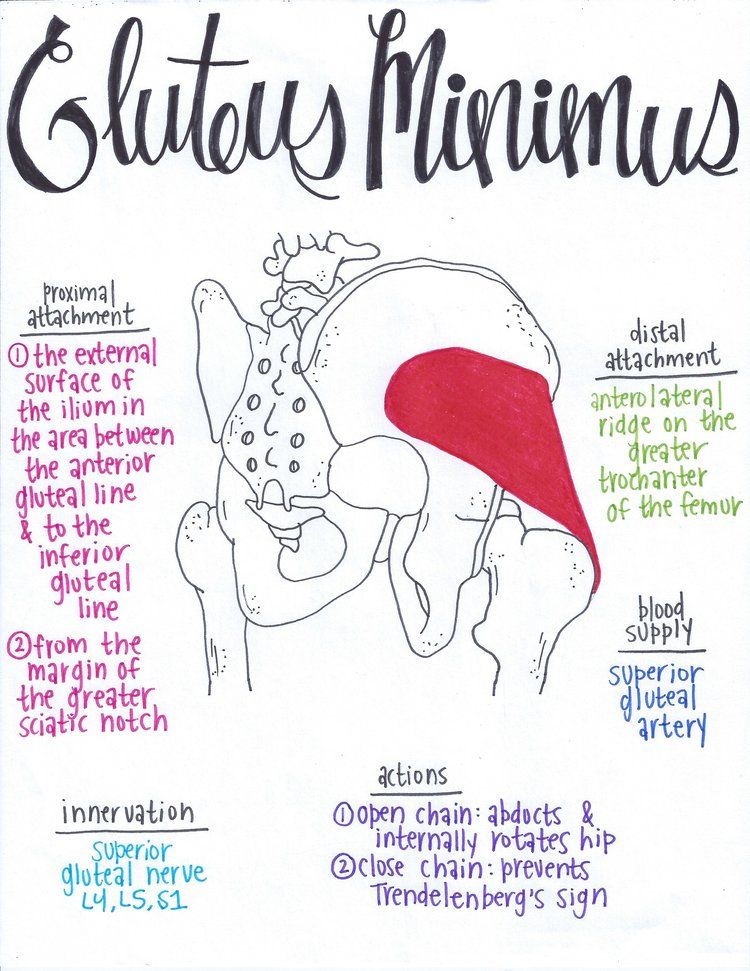 Gluteus Minimus
proximal
attachment
① the external
surface of
the ilium in
the area between
the anterior
gluteal line
& to the
inferior
gluteal
line
② from the
margin of
the greater
sciatic notch
distal
attachment
anterolateral
ridge on the
greater
trochanter
of the femur
blood
supply
superior
gluteal
artery
innervation
superior
gluteal nerve
L4, L5, S1
actions
① open chain: abducts &
internally rotates hip
② close chain: prevents
Trendelenberg's sign